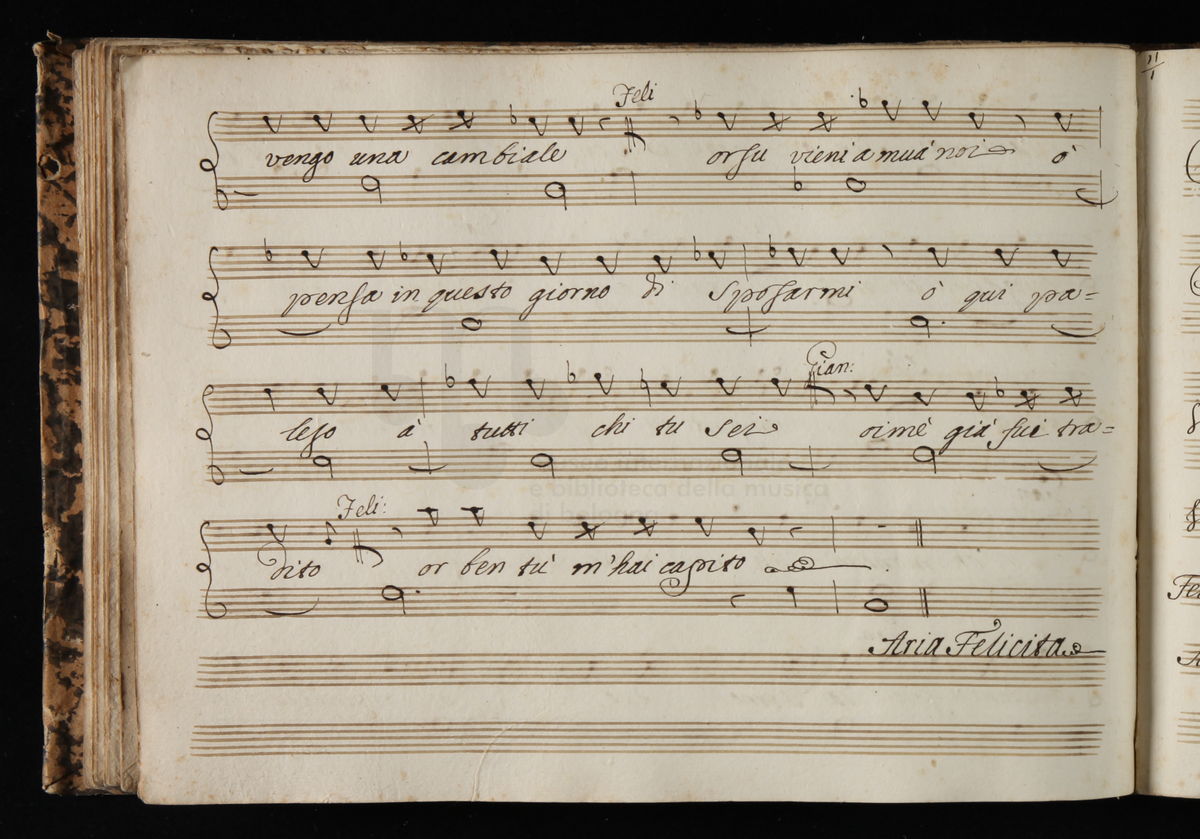 Feli
vengo una cambiale orsu vieni a mua' noi ò
pensa in questo giorno di sposarmi ò qui pa=
leso a' tutti chi tu sei
Gian:
oimè già fui tra=
Feli:
dito or ben tu' m'hai capito
Aria Felicita
e biblioteca della musica